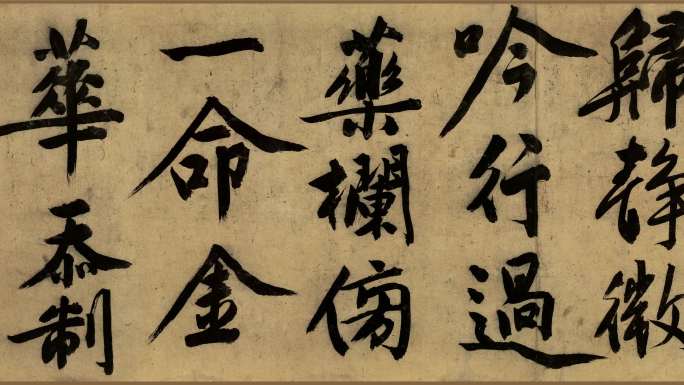 歸静徵
吟行過
藥欄傍
一命金
華忝制